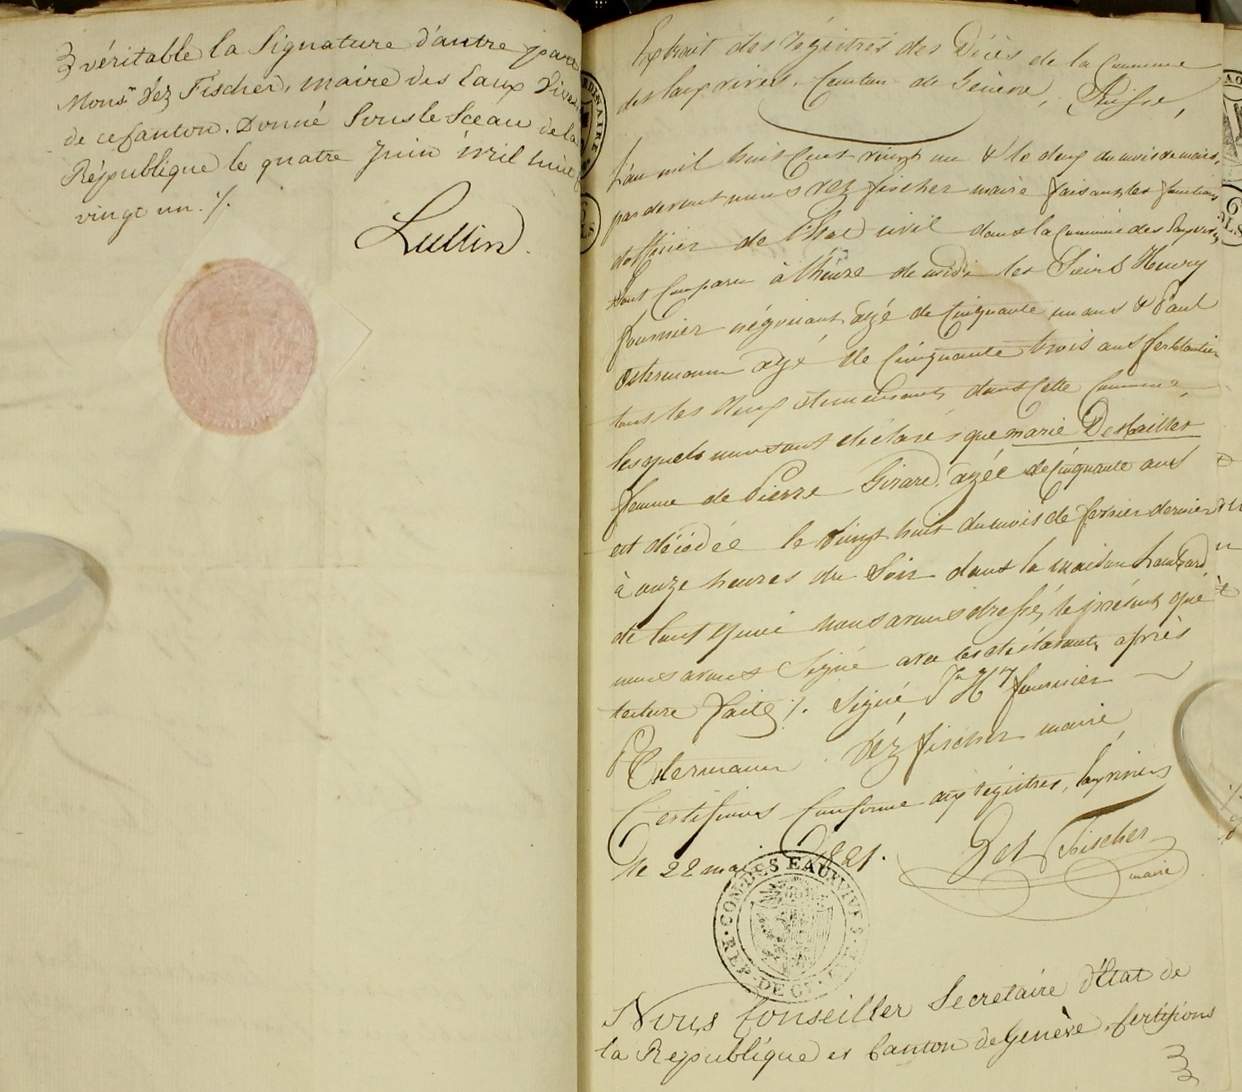 véritable la Signature d'autre part
Monsr Dez Fischer, maire des Eaux Vives
de ce Canton. Donné Sous le Sceau de la
République le quatre Juin mil huit
vingt un ./.
Lullin
Extrait des régistres des Décès de la Commune
des Eauxvives, Canton de Genève, Suisse,
L'an mil huit cent vingt un & le deux du mois de mars,
pardevant nous Dez fischer maire faisant les fonctions
d'officier de l'Etat civil dans la Commune des Eauxvives,
sont comparu à l'heure de midi les Sieurs Henry
fournier négociant agé de Cinquante un ans & Paul
Ostermann agé de Cinquante trois ans ferblantier
tous les deux demeurants dans cette Commune
lesquels nous ont déclaré, que marie Destailler
femme de Pierre Girard, agée de Cinquante ans
est décédée le vingt huit du mois de fevrier dernier
à onze heures du Soir dans la maison
de tout quoi nous avons dressé, le présent que
nous avons Signé avec les déclarants après
lecture faite ./. Signé Jn Hy fournier
P Ostermann . Dez fischer maire
Certifions Conforme aux régistres, Eauxvives
le 22 mai 1821.
Dez Fischer
maire
COM. DES EAUX VIVES
REP. DE GE
Nous Conseiller Secretaire d'Etat de
la République et Canton de Genève, Certifions